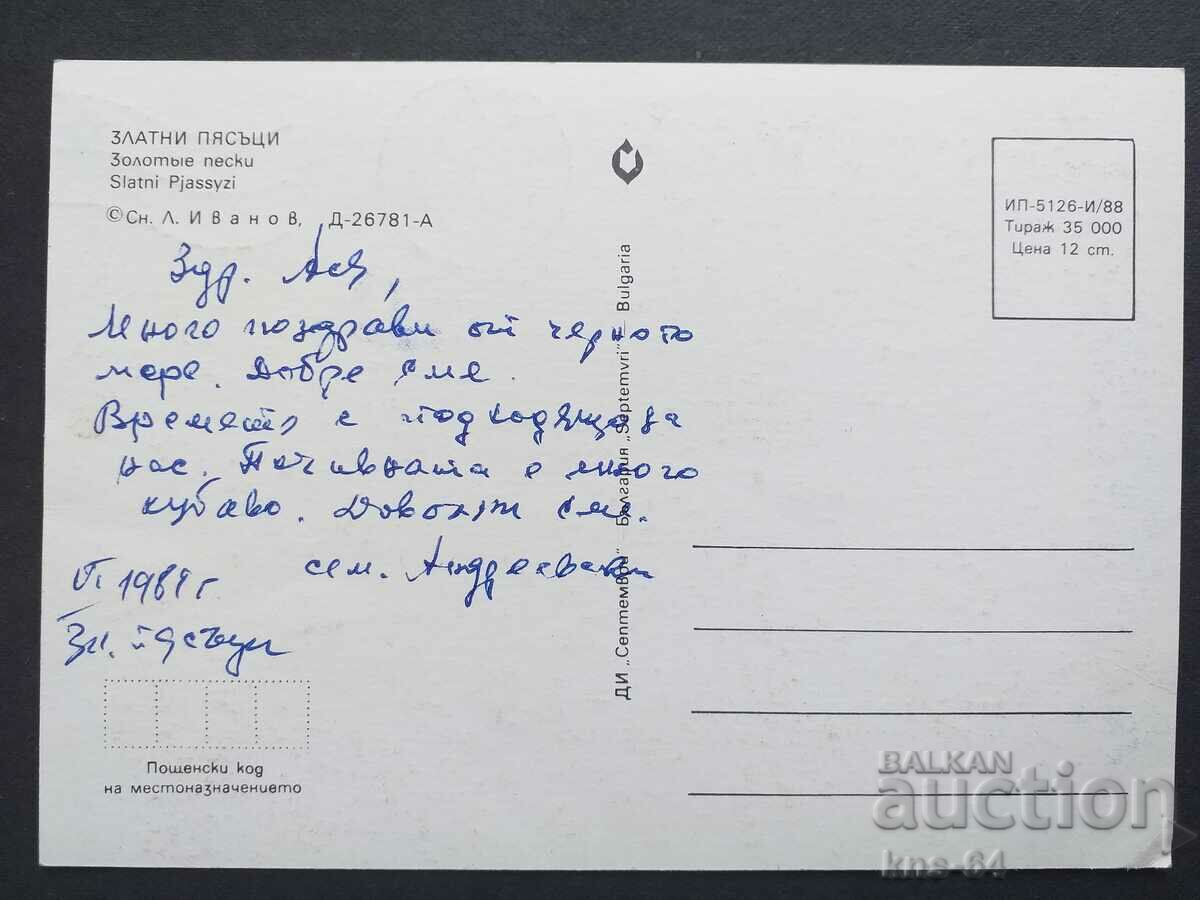 ЗЛАТНИ ПЯСЪЦИ
Золотые пески
Slatni Pjassyzi
© Сн. Л. Иванов, Д-26781-А
Здр. Ася,
Много поздрави от черното
море. Добре сме.
Времето е подходящо за
нас. Почивната е много
хубаво. Доволни сме.
сем. Андрееви
VI 198 г.
Зл. пясъци
Пощенски код
на местоназначението
ДИ „Септември" — България „Septemvri" — Bulgaria
ИП-5126-И/88
Тираж 35 000
Цена 12 ст.
BALKAN
auction
kns-64